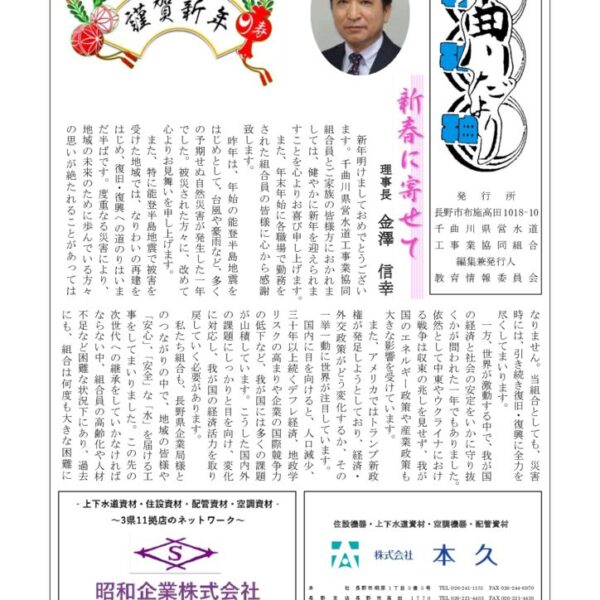 謹賀新年
春
千曲川だより
発行所
長野市布施高田1018-10
千曲川県営水道
工事業協同組合
編集兼発行人
教育情報委員会
新春に寄せて
理事長 金澤 信幸
新年明けましておめでとうござい
ます。千曲川県営水道工事業協同
組合員とご家族の皆様方におかれま
しては、健やかに新年を迎えられま
すことを心よりお喜び申し上げます。
また、年末年始に各職場で勤務を
された組合員の皆様に心から感謝
致します。
昨年は、年始の能登半島地震を
はじめとして、台風や豪雨など、多く
の予期せぬ自然災害が発生した一年
でした。被災された方々に、改めて
心よりお見舞いを申し上げます。
また、特に能登半島地震で被害を
受けた地域では、なりわいの再建を
はじめ、復旧・復興への道のりはいま
だ半ばです。度重なる災害により、
地域の未来のために歩んでいる方々
の思いが絶たれることがあっては
なりません。当組合としても、災害
時には、引き続き復旧・復興に全力を
尽くしてまいります。
一方、世界が激動する中で、我が国
の経済と社会の安定をいかに守り抜
くかが問われた一年でもありました。
依然として中東やウクライナにおけ
る戦争は収束の兆しを見せず、我が
国のエネルギー政策や産業政策も
大きな影響を受けています。
また、アメリカではトランプ新政
権が発足しようとしており、経済・
外交政策がどう変化するか、その
一挙一動に世界が注目しています。
国内に目を向けると、人口減少、
三十年以上続くデフレ経済、地政学
リスクの高まりや企業の国際競争力
の低下など、我が国には多くの課題
が山積しています。こうした国内外
の課題にしっかりと目を向け、変化
に対応し、我が国の経済活力を取り
戻していく必要があります。
私たち組合も、長野県企業局様と
のつながりの中で、地域の皆様や
「安心」、「安全」な「水」を届ける工
事をしてまいりました。この先の
次世代への継承をしていかなければ
ならない中、組合員の高齢化や人材
不足など困難な状況下にあり、過去
にも、組合は何度も大きな困難に
- 上下水道資材・住設資材・配管資材・空調資材 -
～3県11拠店のネットワーク～
S
昭和企業株式会社
住設機器・上下水道資材・空調機器・配管資材
株式会社 本久